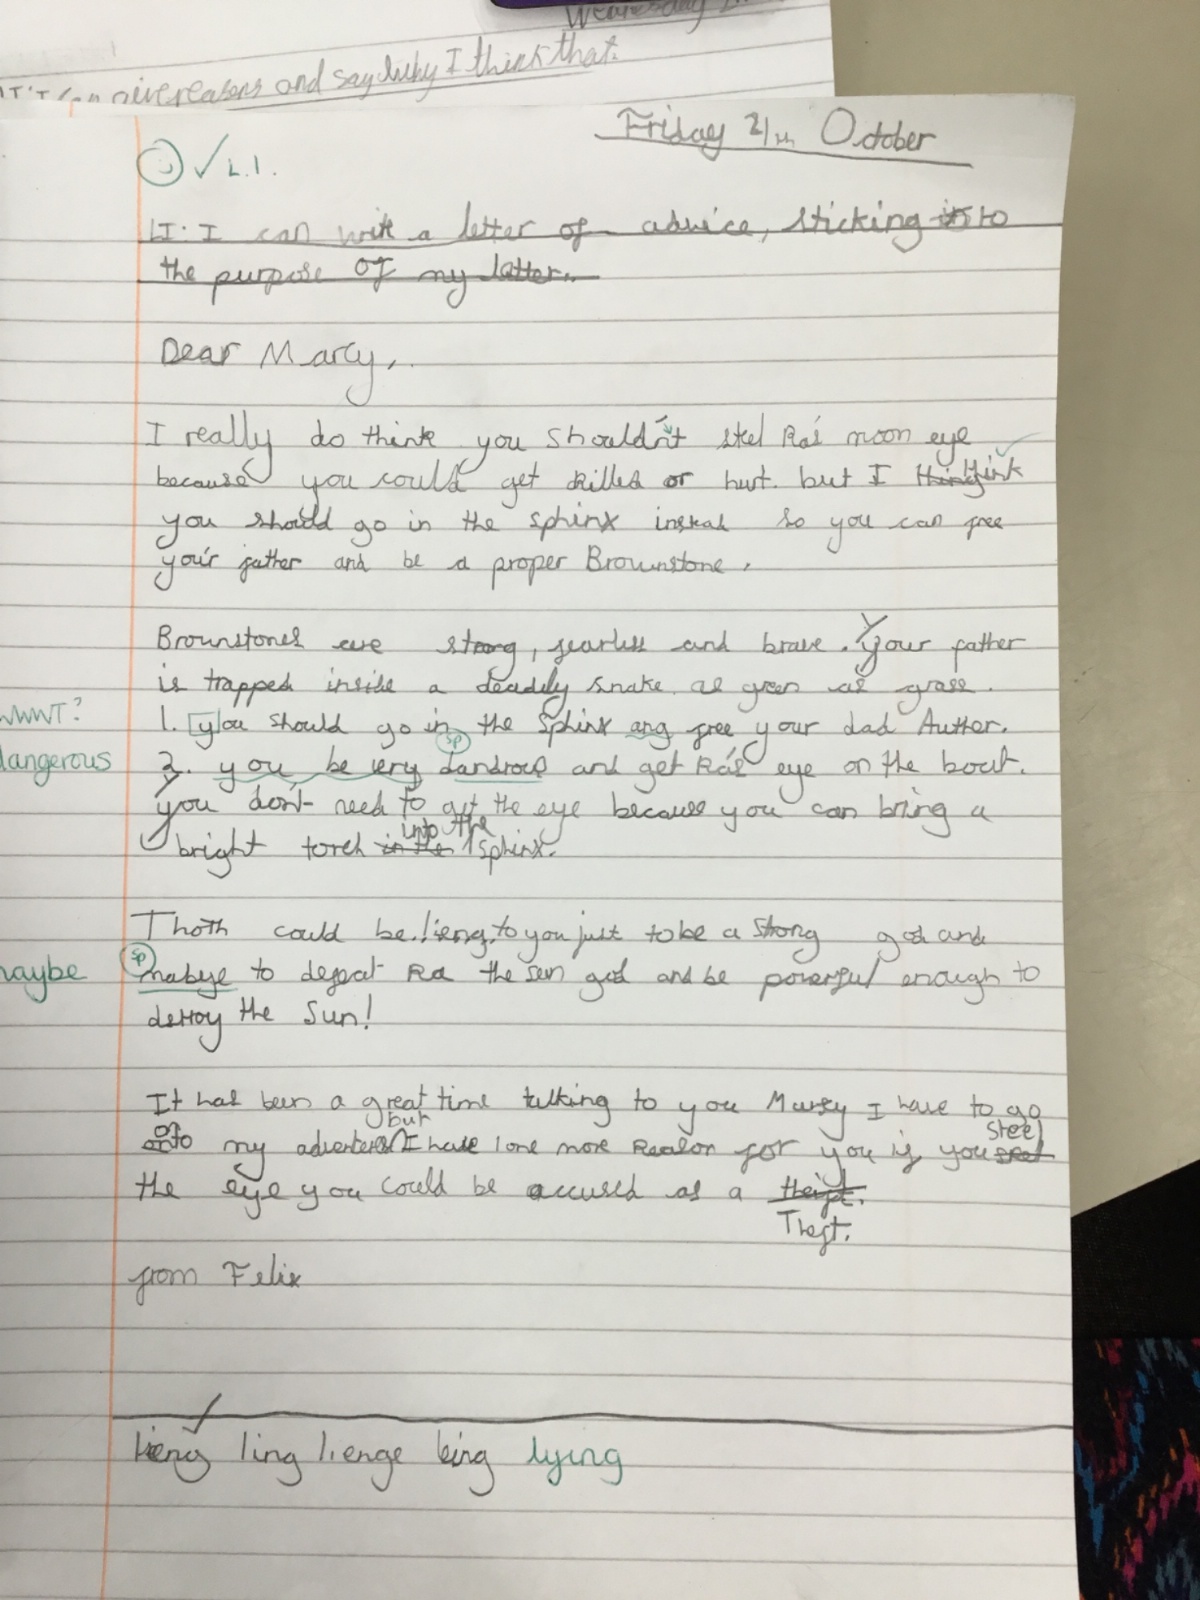 Wednesday
I can give reasons and say why I think that.
Friday 21th October
✓ L.I.
LI: I can write a letter of advice, sticking to
the purpose of my letter.
Dear Marcy,
I really do think you shouldn't steel Ra's moon eye
because you could get killed or hurt. but I think
you should go in the sphinx instead so you can free
your father and be a proper Brownstone.
Brownstones are strong, fearless and brave. Your father
is trapped inside a deadly snake as green as grass.
WWWT?
1. you should go in the Sphinx ang free your dad Auther.
sp
dangerous
2. you be very dandrous and get Ra's eye on the boat.
you don't need to get the eye because you can bring a
into the
bright torch in the sphinx.
Thoth could be lieng to you just to be a strong god and
sp
maybe
mabye to defeat Ra the sun god and be powerful enough to
destroy the Sun!
It has been a great time talking to you Marcy I have to go
but
my I have one more Reason for you if you steel
the eye you could be accused as a theift.
Theft.
from Felix
lieng ling lienge leing lying